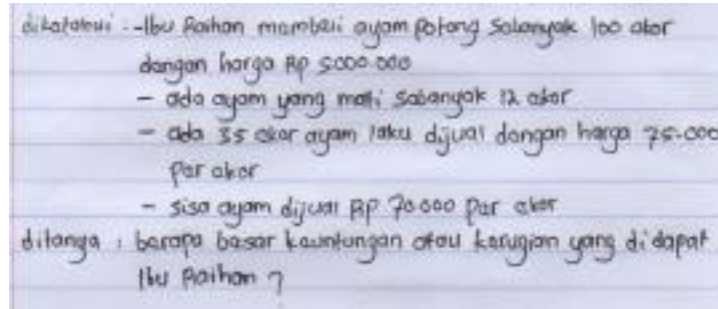 diketahui : - Ibu Raihan membeli ayam potong sebanyak 100 ekor
dengan harga Rp 5000.000
- ada ayam yang mati sebanyak 12 ekor
- ada 35 ekor ayam laku dijual dengan harga 75.000
per ekor
- sisa ayam dijual Rp 70.000 per ekor
ditanya : berapa besar keuntungan atau kerugian yang didapat
Ibu Raihan ?